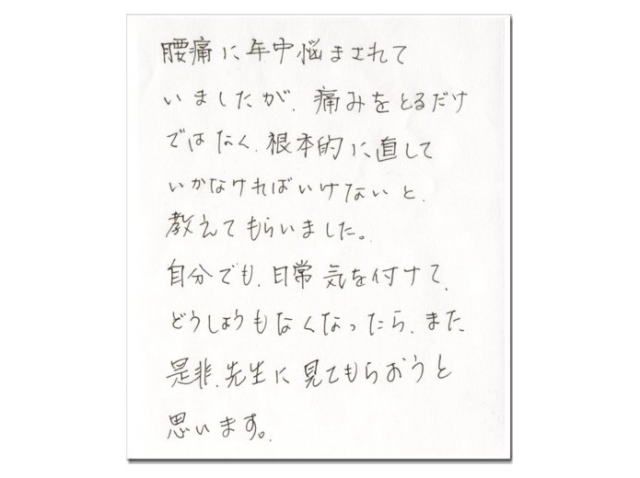 腰痛に年中悩まされて
いましたが、痛みをとるだけ
ではなく、根本的に直して
いかなければいけないと、
教えてもらいました。
自分でも、日常気を付けて、
どうしようもなくなったら、また、
是非、先生に見てもらおうと
思います。